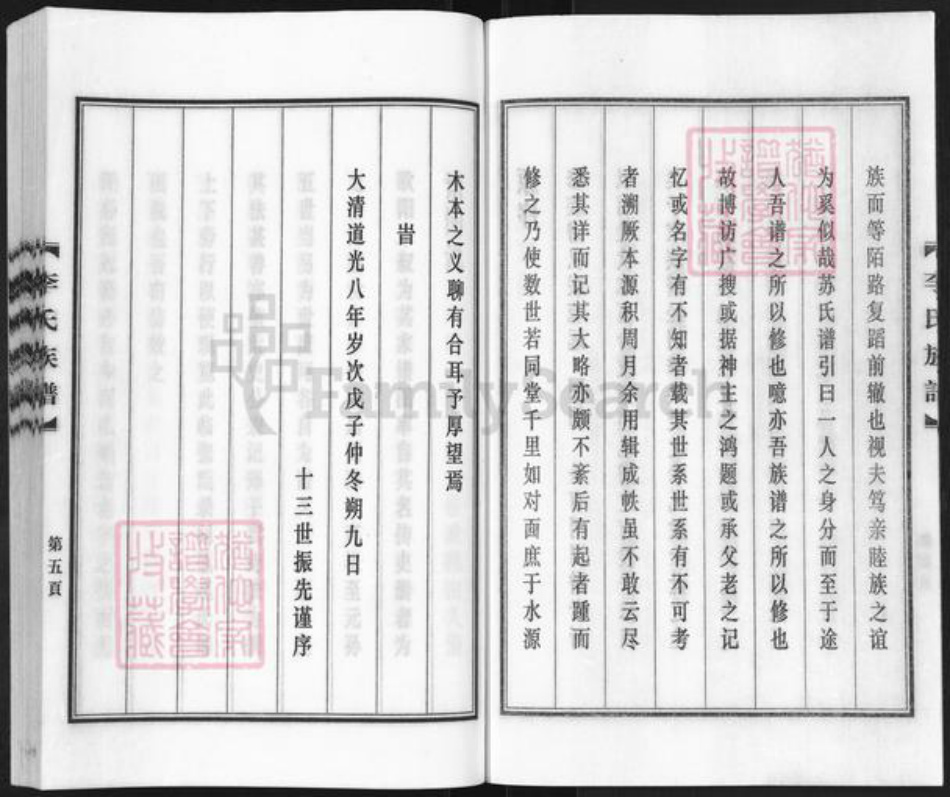 族而等陌路复蹈前辙也视夫笃亲睦族之谊
为奚似哉苏氏谱引曰一人之身分而至于途
人吾谱之所以修也噫亦吾族谱之所以修也
故博访广搜或据神主之鸿题或承父老之记
忆或名字有不知者载其世系世系有不可考
者溯厥本源积周月余用辑成帙虽不敢云尽
悉其详而记其大略亦颇不紊后有起者踵而
修之乃使数世若同堂千里如对面庶于水源
李氏族譜
木本之义聊有合耳予厚望焉
旹
大清道光八年岁次戊子仲冬朔九日
十三世振先谨序
李氏族譜
第五頁
FamilySearch